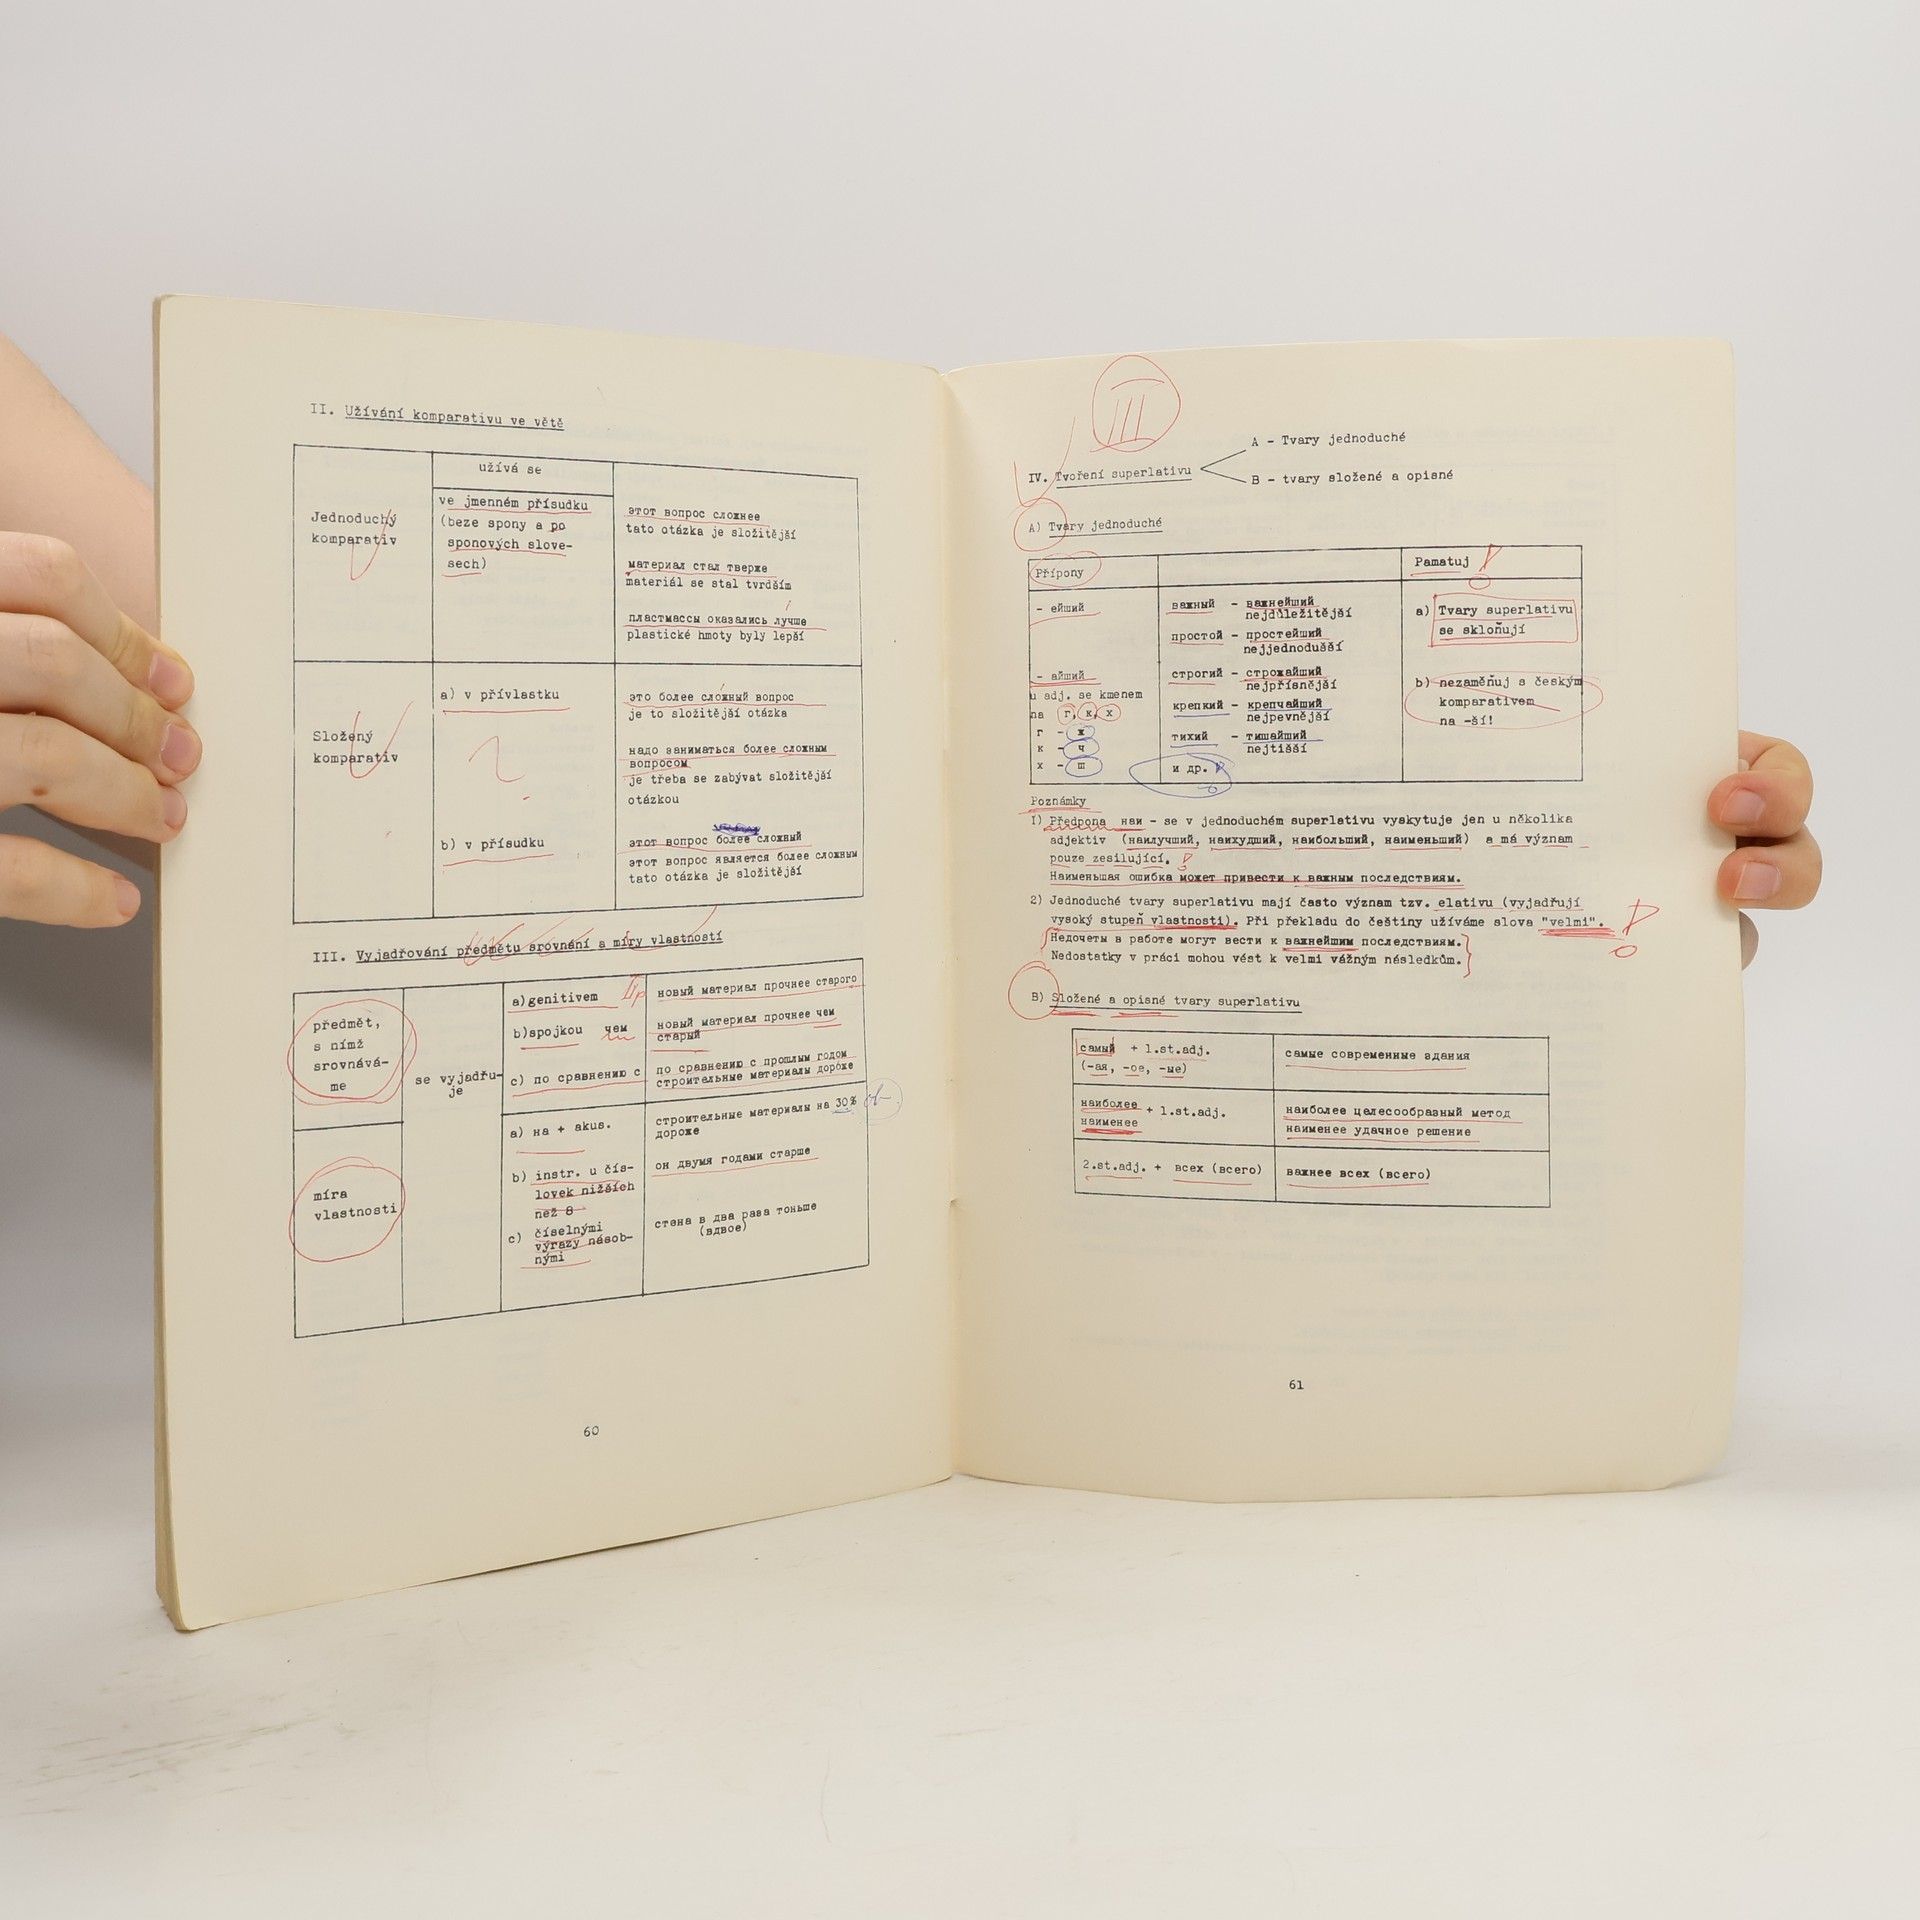 II. Užívání komparativu ve větě
užívá se
Jednoduchý
komparativ
ve jmenném přísudku
(beze spony a po
sponových slove-
sech)
этот вопрос сложнее
tato otázka je složitější
материал стал тверже
materiál se stal tvrdším
пластмассы оказались лучше
plastické hmoty byly lepší
Složený
komparativ
a) v přívlastku
это более сложный вопрос
je to složitější otázka
надо заниматься более сложным
вопросом
je třeba se zabývat složitější
otázkou
b) v přísudku
этот вопрос более сложный
этот вопрос является более сложным
tato otázka je složitější
III. Vyjadřování předmětu srovnání a míry vlastností
předmět,
s nímž
srovnává-
me
se vyjadřu-
je
a)genitivem
новый материал прочнее старого
b)spojkou чем
новый материал прочнее чем
старый
c) по сравнению с
по сравнению с прошлым годом
строительные материалы дороже
míra
vlastnosti
a) на + akus.
строительные материалы на 30%
дороже
b) instr. u čís-
lovek nižších
než 8
он двумя годами старше
c) číselnými
výrazy násob-
nými
стена в два раза тоньше
(вдвое)
60
III
IV. Tvoření superlativu
A - Tvary jednoduché
B - tvary složené a opisné
A) Tvary jednoduché
Přípony
Pamatuj !
- ейший
важный - важнейший
nejdůležitější
простой - простейший
nejjednodušší
- айший
u adj. se kmenem
na г, к, х
г - ж
к - ч
х - ш
строгий - строжайший
nejpřísnější
крепкий - крепчайший
nejpevnější
тихий - тишайший
nejtišší
и др. !
a) Tvary superlativu
se skloňují
b) nezaměňuj s českým
komparativem
na -ší!
Poznámky
1) Předpona наи - se v jednoduchém superlativu vyskytuje jen u několika
adjektiv (наилучший, наихудший, наибольший, наименьший) a má význam
pouze zesilující. !
Наименьшая ошибка может привести к важным последствиям.
2) Jednoduché tvary superlativu mají často význam tzv. elativu (vyjadřují
vysoký stupeň vlastnosti). Při překladu do češtiny užíváme slova "velmi". !
Недочеты в работе могут вести к важнейшим последствиям.
Nedostatky v práci mohou vést k velmi vážným následkům.
B) Složené a opisné tvary superlativu
самый + 1.st.adj.
(-ая, -ое, -ые)
самые современные здания
наиболее
наименее
+ 1.st.adj.
наиболее целесообразный метод
наименее удачное решение
2.st.adj. + всех (всего)
важнее всех (всего)
61